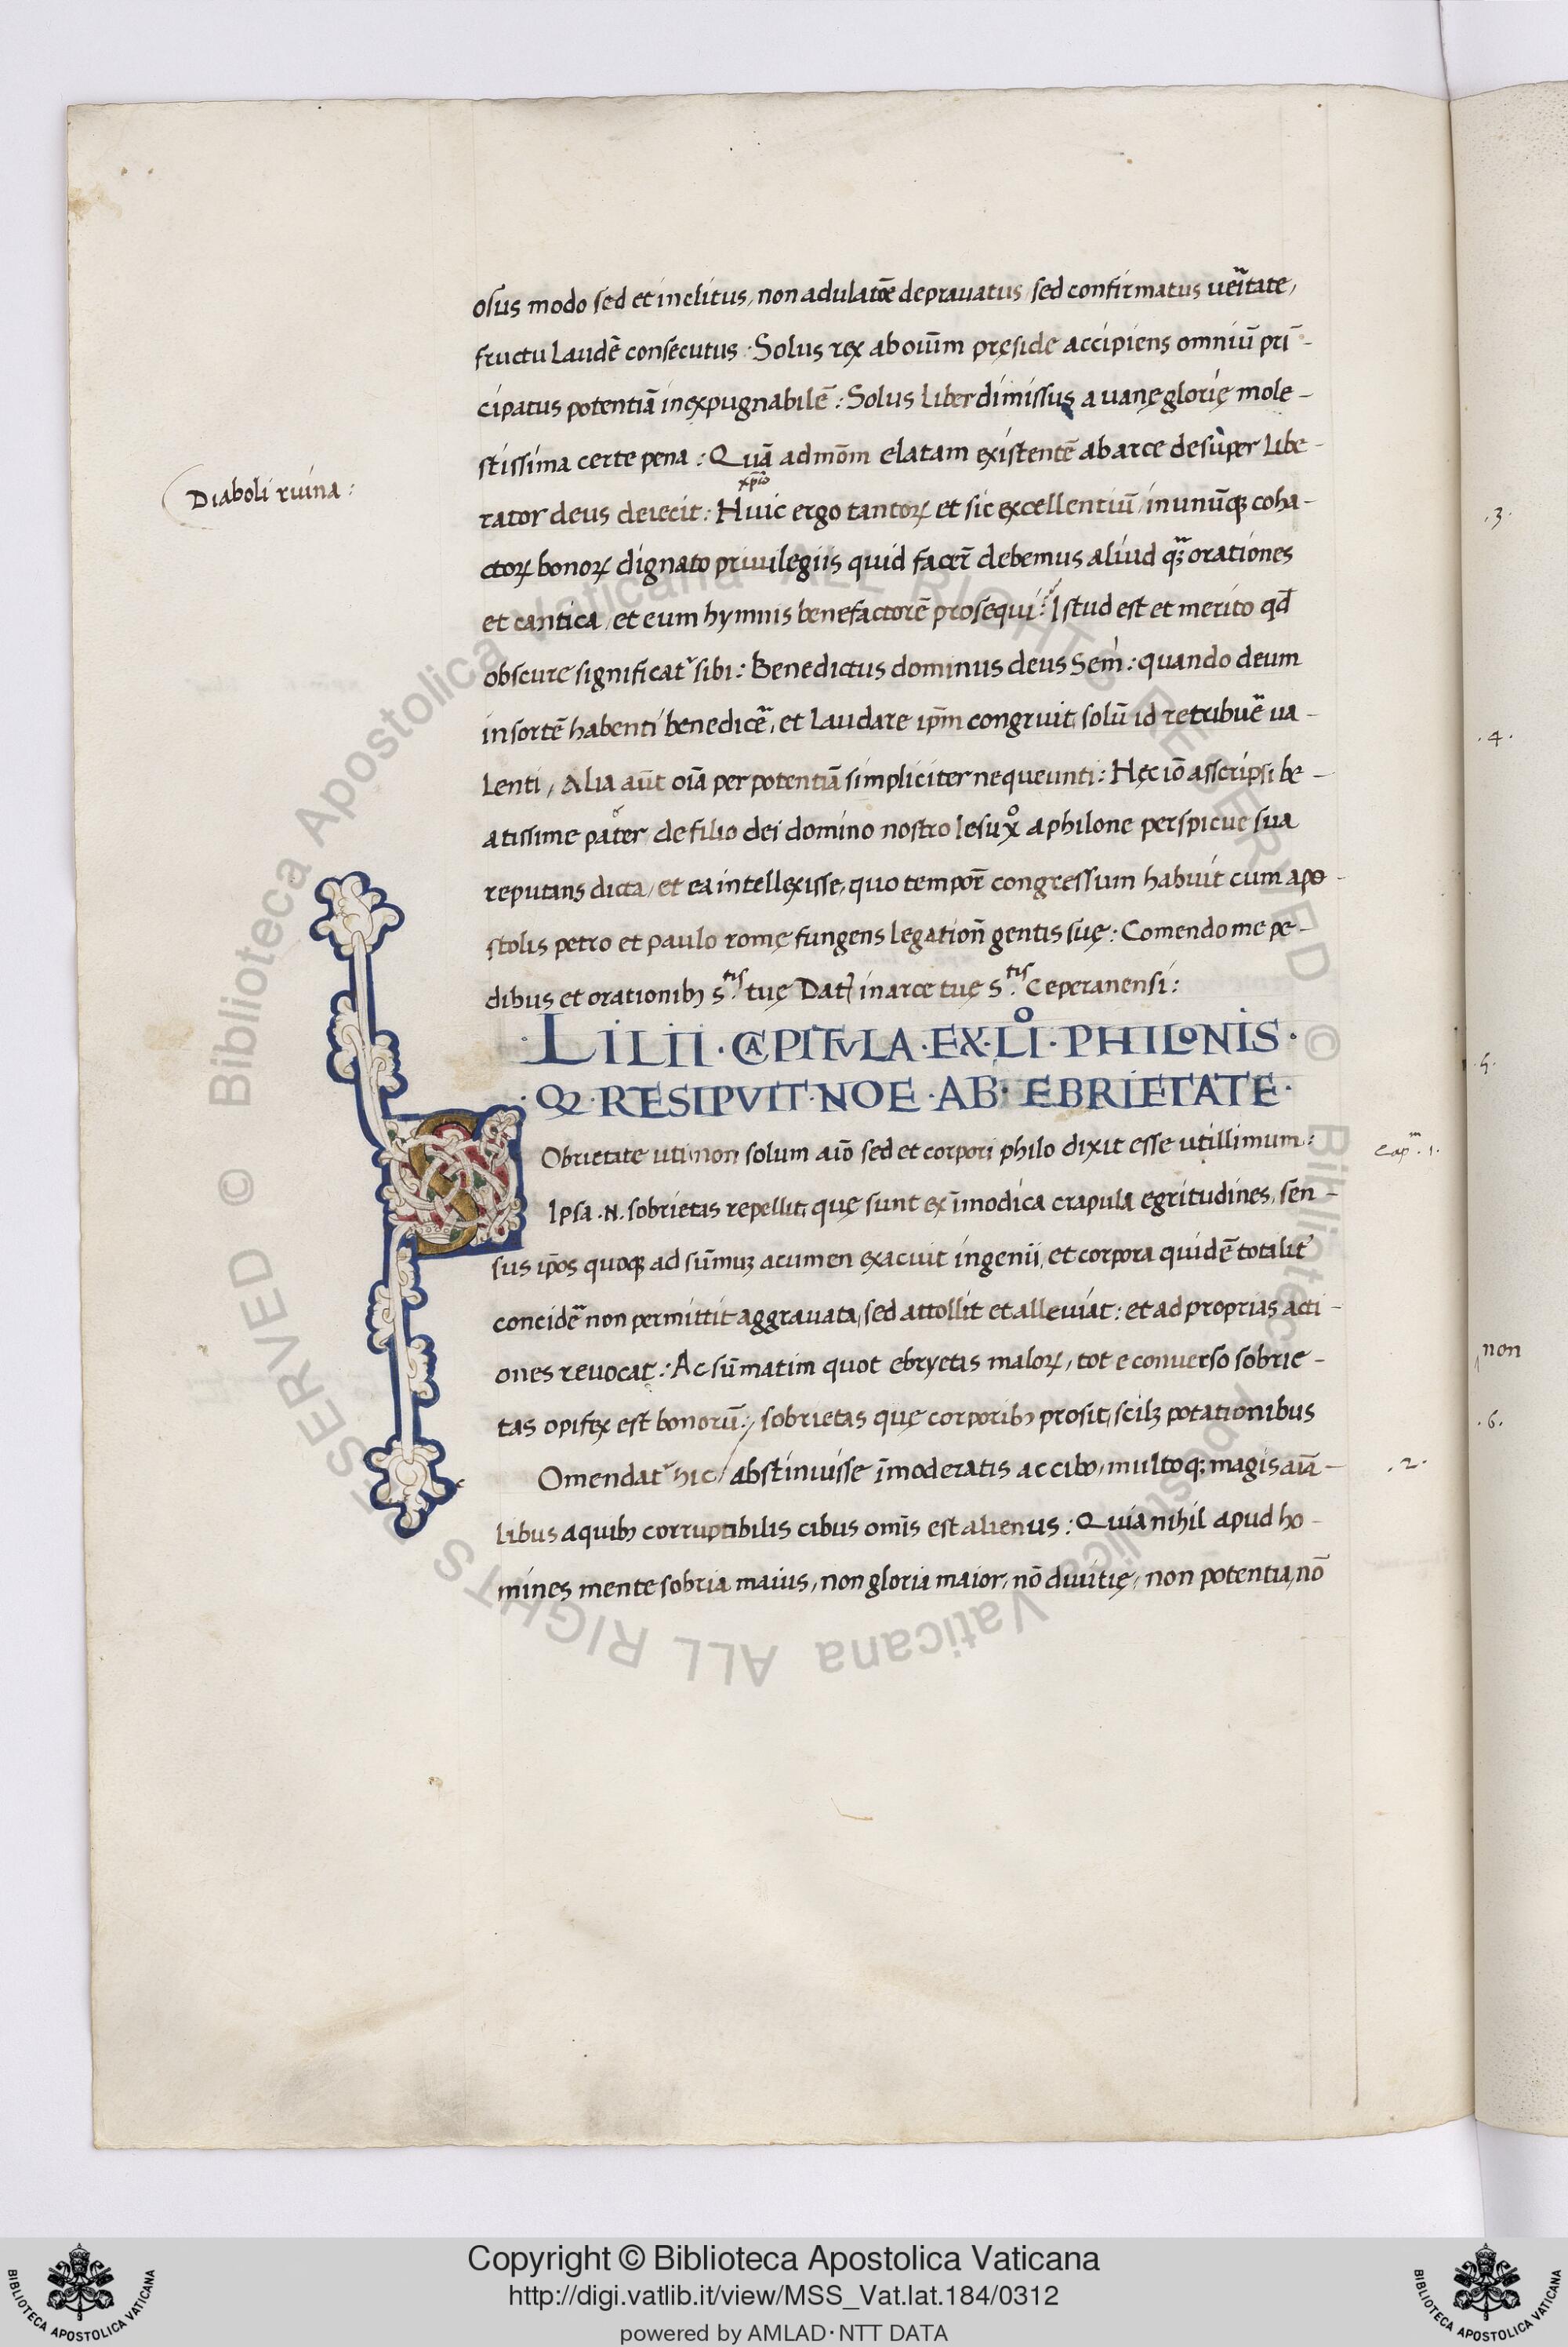 osus modo sed et inclitus, non adulatōe deprauatus, sed confirmatus ueītate,
fructu laudē consecutus. Solus rex ab oiūm pręside accipiens omniū prī-
cipatus potentiā inexpugnabilē: Solus liber dimissus a uanę glorię mole-
stissima certe pena: Quā admōm elatam existentē ab arce desuper libe-
Diaboli ruina:
xp̄o
rator deus deiecit: Huic ergo tantoꝝ et sic excellentiū in unūqꝫ coha-
ctoꝝ bonoꝝ dignato priuilegiis quid facer̄ debemus aliud qꝫ orationes
et cantica, et eum hymnis benefactorē prosequi? Istud est et merito qd̄
obscure significat᷑ sibi: Benedictus dominus deus Sem: quando deum
in sortē habenti benedicē, et laudare ip̄m congruit, solū id retribuē ua-
lenti, Alia aūt oīa per potentiā simpliciter nequeunti: Hęc iō asscripsi be-
atissime pater de filio dei domino nostro Iesu xͦ a philone perspicue sua
reputans dicta, et ea intellexisse, quo tempor̄ congressum habuit cum apo-
stolis petro et paulo romę fungens legation̄ gentis suę: Comendo me pe-
dibus et orationibꝫ s.tis tuę Dat in arce tuę S.tis Ceperanensi:
·LILII·CAPITVLA·EX·LI͒·PHILONIS·
·Q2·RESIPVIT·NOE·AB·EBRIETATE·
SObrietate uti non solum aiō sed et corpori philo dixit esse utillimum:
Capm.1.
Ipsa .N. sobrietas repellit, quę sunt ex īmodica crapula egritudines, sen-
sus ip̄os quoqꝫ ad sūmuꝫ acumen exacuit ingenii, et corpora quidē totalit᷑
concidē non permittit aggrauata, sed attollit et alleuiat: et ad proprias acti-
ones reuocat: Ac sūmatim quot ebryetas maloꝝ, tot e conuerso sobrie-
tas opifex est bonorū: sobrietas quę corporibꝫ prosit, scilꝫ potationibus
Omendat᷑ hic / abstinuisse īmoderatis ac cibo, multoqꝫ magis aīa-
.2.
libus a quibꝫ corruptibilis cibus omīs est alienus: Quia nihil apud ho-
mines mente sobria maius, non gloria maior, nō diuitię, non potentia, nō
.3.
.4.
.5.
non
.6.
Copyright © Biblioteca Apostolica Vaticana
http://digi.vatlib.it/view/MSS_Vat.lat.184/0312
powered by AMLAD·NTT DATA
BIBLIOTECA APOSTOLICA VATICANA
BIBLIOTECA APOSTOLICA VATICANA
© Biblioteca Apostolica Vaticana ALL RIGHTS RESERVED © Biblioteca Apostolica Vaticana ALL RIGHTS RESERVED